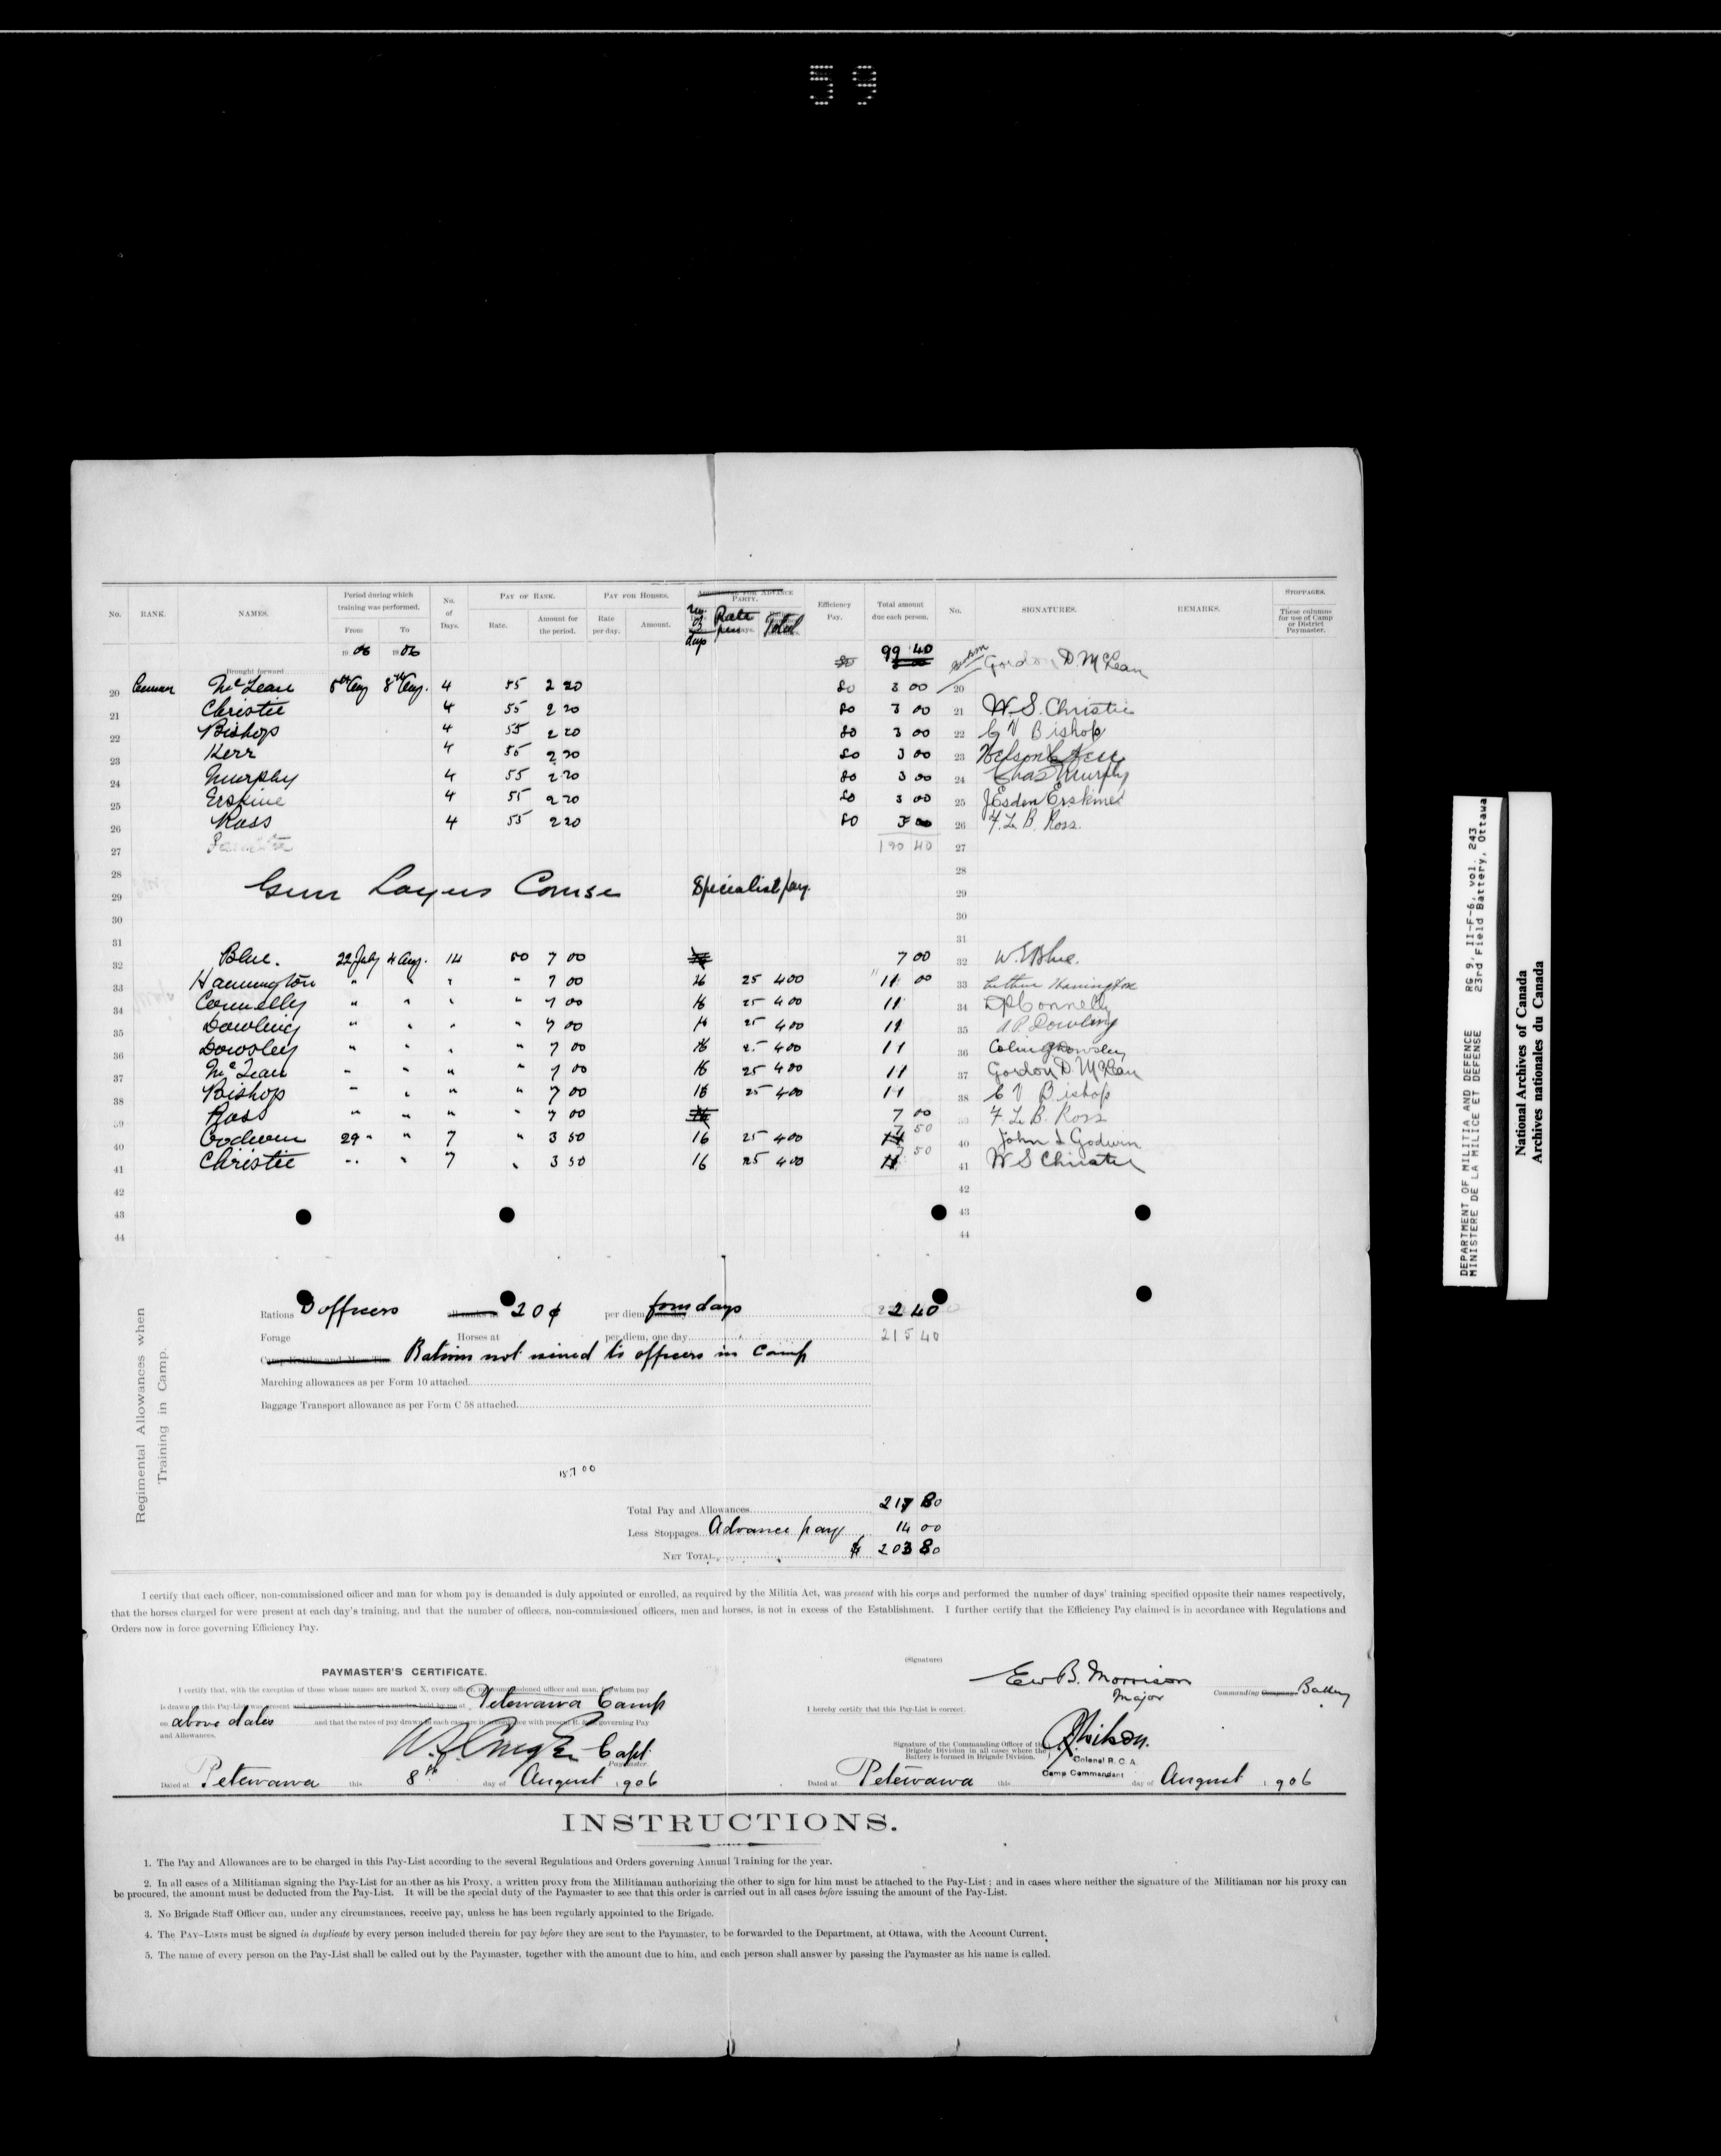 59
No. RANK. NAMES. Period during which training was performed. From To No. of Days. PAY OF RANK. Rate. Amount for the period. PAY FOR HORSES. Rate per day. Amount. ADVANCE PARTY. Rate per Total Efficiency Pay. Total amount due each person. No. SIGNATURES. REMARKS. STOPPAGES. These columns for use of Camp or District Paymaster.
1906 1906
Brought forward 80 99 40
20 Gunner McLean 5th Aug 8th Aug. 4 55 2 20 80 3 00 20 Gordon D. McLean
21 Christie 4 55 2 20 80 3 00 21 W. S. Christie
22 Bishop 4 55 2 20 80 3 00 22 C V Bishop
23 Kerr 4 55 2 20 80 3 00 23 Nelson Kerr
24 Murphy 4 55 2 20 80 3 00 24 Chas Murphy
25 Erskine 4 55 2 20 80 3 00 25 J Esden Erskine
26 Ross 4 55 2 20 80 3 00 26 F. Le B. Ross.
27 190 40 27
28 28
29 Gun Layers Course Specialist pay. 29
30 30
31 31
32 Blue. 22 July 4 Aug. 14 50 7 00 7 00 32 W. E Blue.
33 Hannington " " " " 7 00 16 25 4 00 11 00 33 Luther Hannington
34 Connelly " " " " 7 00 16 25 4 00 11 34 D P Connelly
35 Dowling " " " " 7 00 16 25 4 00 11 35 A. P. Dowling
36 Dowsley " " " " 7 00 16 25 4 00 11 36 Colin Dowsley
37 McLean " " " " 7 00 16 25 4 00 11 37 Gordon D. McLean
38 Bishop " " " " 7 00 16 25 4 00 11 38 C V Bishop
39 Ross " " " " 7 00 7 00 39 F. Le B. Ross
40 Godwin 29 " " 7 " 3 50 16 25 4 00 7 50 40 John I Godwin
41 Christie " " 7 " 3 50 16 25 4 00 7 50 41 W S Christie
42 42
43 43
44 44
Regimental Allowances when Training in Camp.
Rations 3 officers 20¢ per diem four days 2 40
Forage Horses at per diem, one day 215 40
Rations not issued to officers in Camp
Marching allowances as per Form 10 attached
Baggage Transport allowance as per Form C 58 attached
187 00
Total Pay and Allowances 217 80
Less Stoppages Advance pay 14 00
NET TOTAL $ 203 80
I certify that each officer, non-commissioned officer and man for whom pay is demanded is duly appointed or enrolled, as required by the Militia Act, was present with his corps and performed the number of days' training specified opposite their names respectively,
that the horses charged for were present at each day's training, and that the number of officers, non-commissioned officers, men and horses, is not in excess of the Establishment. I further certify that the Efficiency Pay claimed is in accordance with Regulations and
Orders now in force governing Efficiency Pay.
PAYMASTER'S CERTIFICATE.
I certify that, with the exception of those whose names are marked X, every officer, non-commissioned officer and man, for whom pay
is drawn on this Pay-List was present and answered his name at a muster held by me at Petewawa Camp
on above dates and that the rates of pay drawn in each case are in accordance with present R. & O. governing Pay
and Allowances.
Capt. Paymaster.
Dated at Petewawa this 8th day of August 1906
(Signature)
Ew B. Morrison
Major Commanding Company Battery
I hereby certify that this Pay-List is correct.
Signature of the Commanding Officer of the
Brigade Division in all cases where the
Battery is formed in Brigade Division.
Colonel R. C. A.
Camp Commandant
Dated at Petewawa this day of August 1906
INSTRUCTIONS.
1. The Pay and Allowances are to be charged in this Pay-List according to the several Regulations and Orders governing Annual Training for the year.
2. In all cases of a Militiaman signing the Pay-List for another as his Proxy, a written proxy from the Militiaman authorizing the other to sign for him must be attached to the Pay-List; and in cases where neither the signature of the Militiaman nor his proxy can
be procured, the amount must be deducted from the Pay-List. It will be the special duty of the Paymaster to see that this order is carried out in all cases before issuing the amount of the Pay-List.
3. No Brigade Staff Officer can, under any circumstances, receive pay, unless he has been regularly appointed to the Brigade.
4. The PAY-LISTS must be signed in duplicate by every person included therein for pay before they are sent to the Paymaster, to be forwarded to the Department, at Ottawa, with the Account Current.
5. The name of every person on the Pay-List shall be called out by the Paymaster, together with the amount due to him, and each person shall answer by passing the Paymaster as his name is called.
DEPARTMENT OF MILITIA AND DEFENCE RG 9, II-F-6, vol. 243
MINISTERE DE LA MILICE ET DEFENSE 23rd Field Battery, Ottawa
National Archives of Canada
Archives nationales du Canada